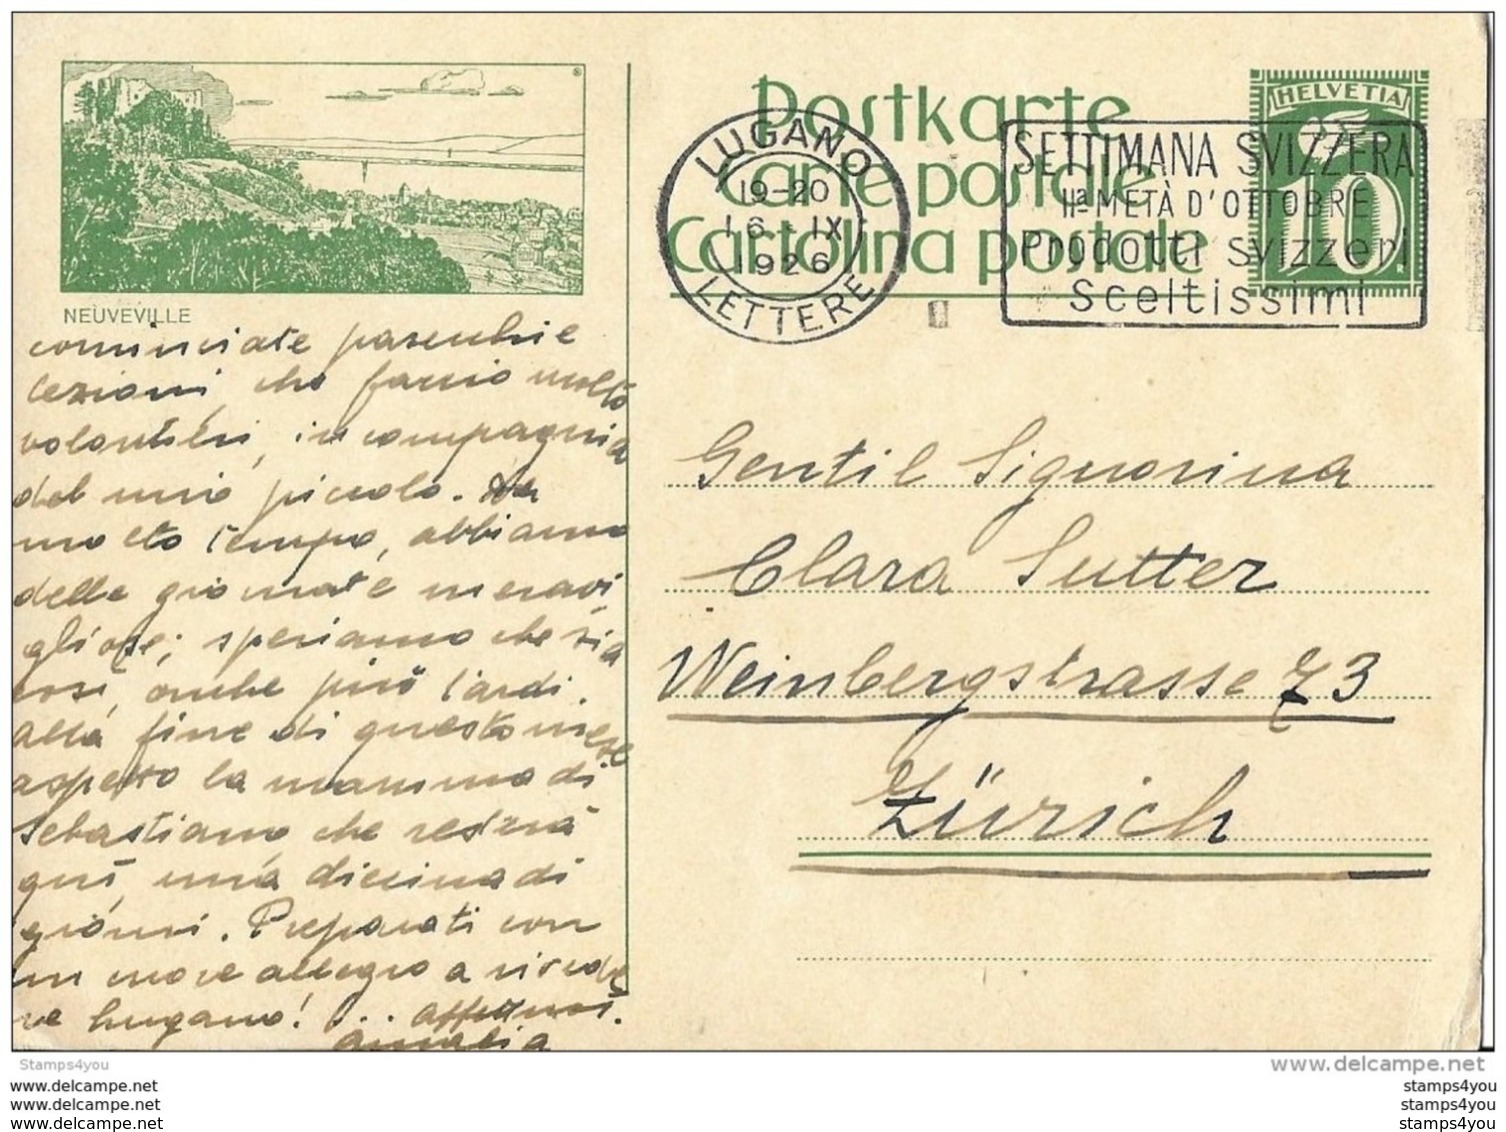 Postkarte
Carte postale
Cartolina postale
HELVETIA
10
LUGANO
19-20
16 · IX
1926
LETTERE
SETTIMANA SVIZZERA
IIª METÀ D'OTTOBRE
Prodotti svizzeri
Sceltissimi
NEUVEVILLE
cominciate parecchie
lezioni, che faccio molto
volontieri, in compagnia
del mio piccolo. Da
molto tempo, abbiamo
delle giornate meravi,
gliose; speriamo che sia
così, anche più tardi.
alla fine di questo mese
aspetto la mamma di
Sebastiano che resterà
quì, una diecina di
giorni. Preparati con
un cuore allegro a rivede
re Lugano! ... affezmoi.
Amalia
Gentil Signorina
Clara Sutter
Weinbergstrasse 73
Zürich
Stamps4you
www.delcampe.net
www.delcampe.net
www.delcampe.net
www.delcampe.net
stamps4you
stamps4you
stamps4you